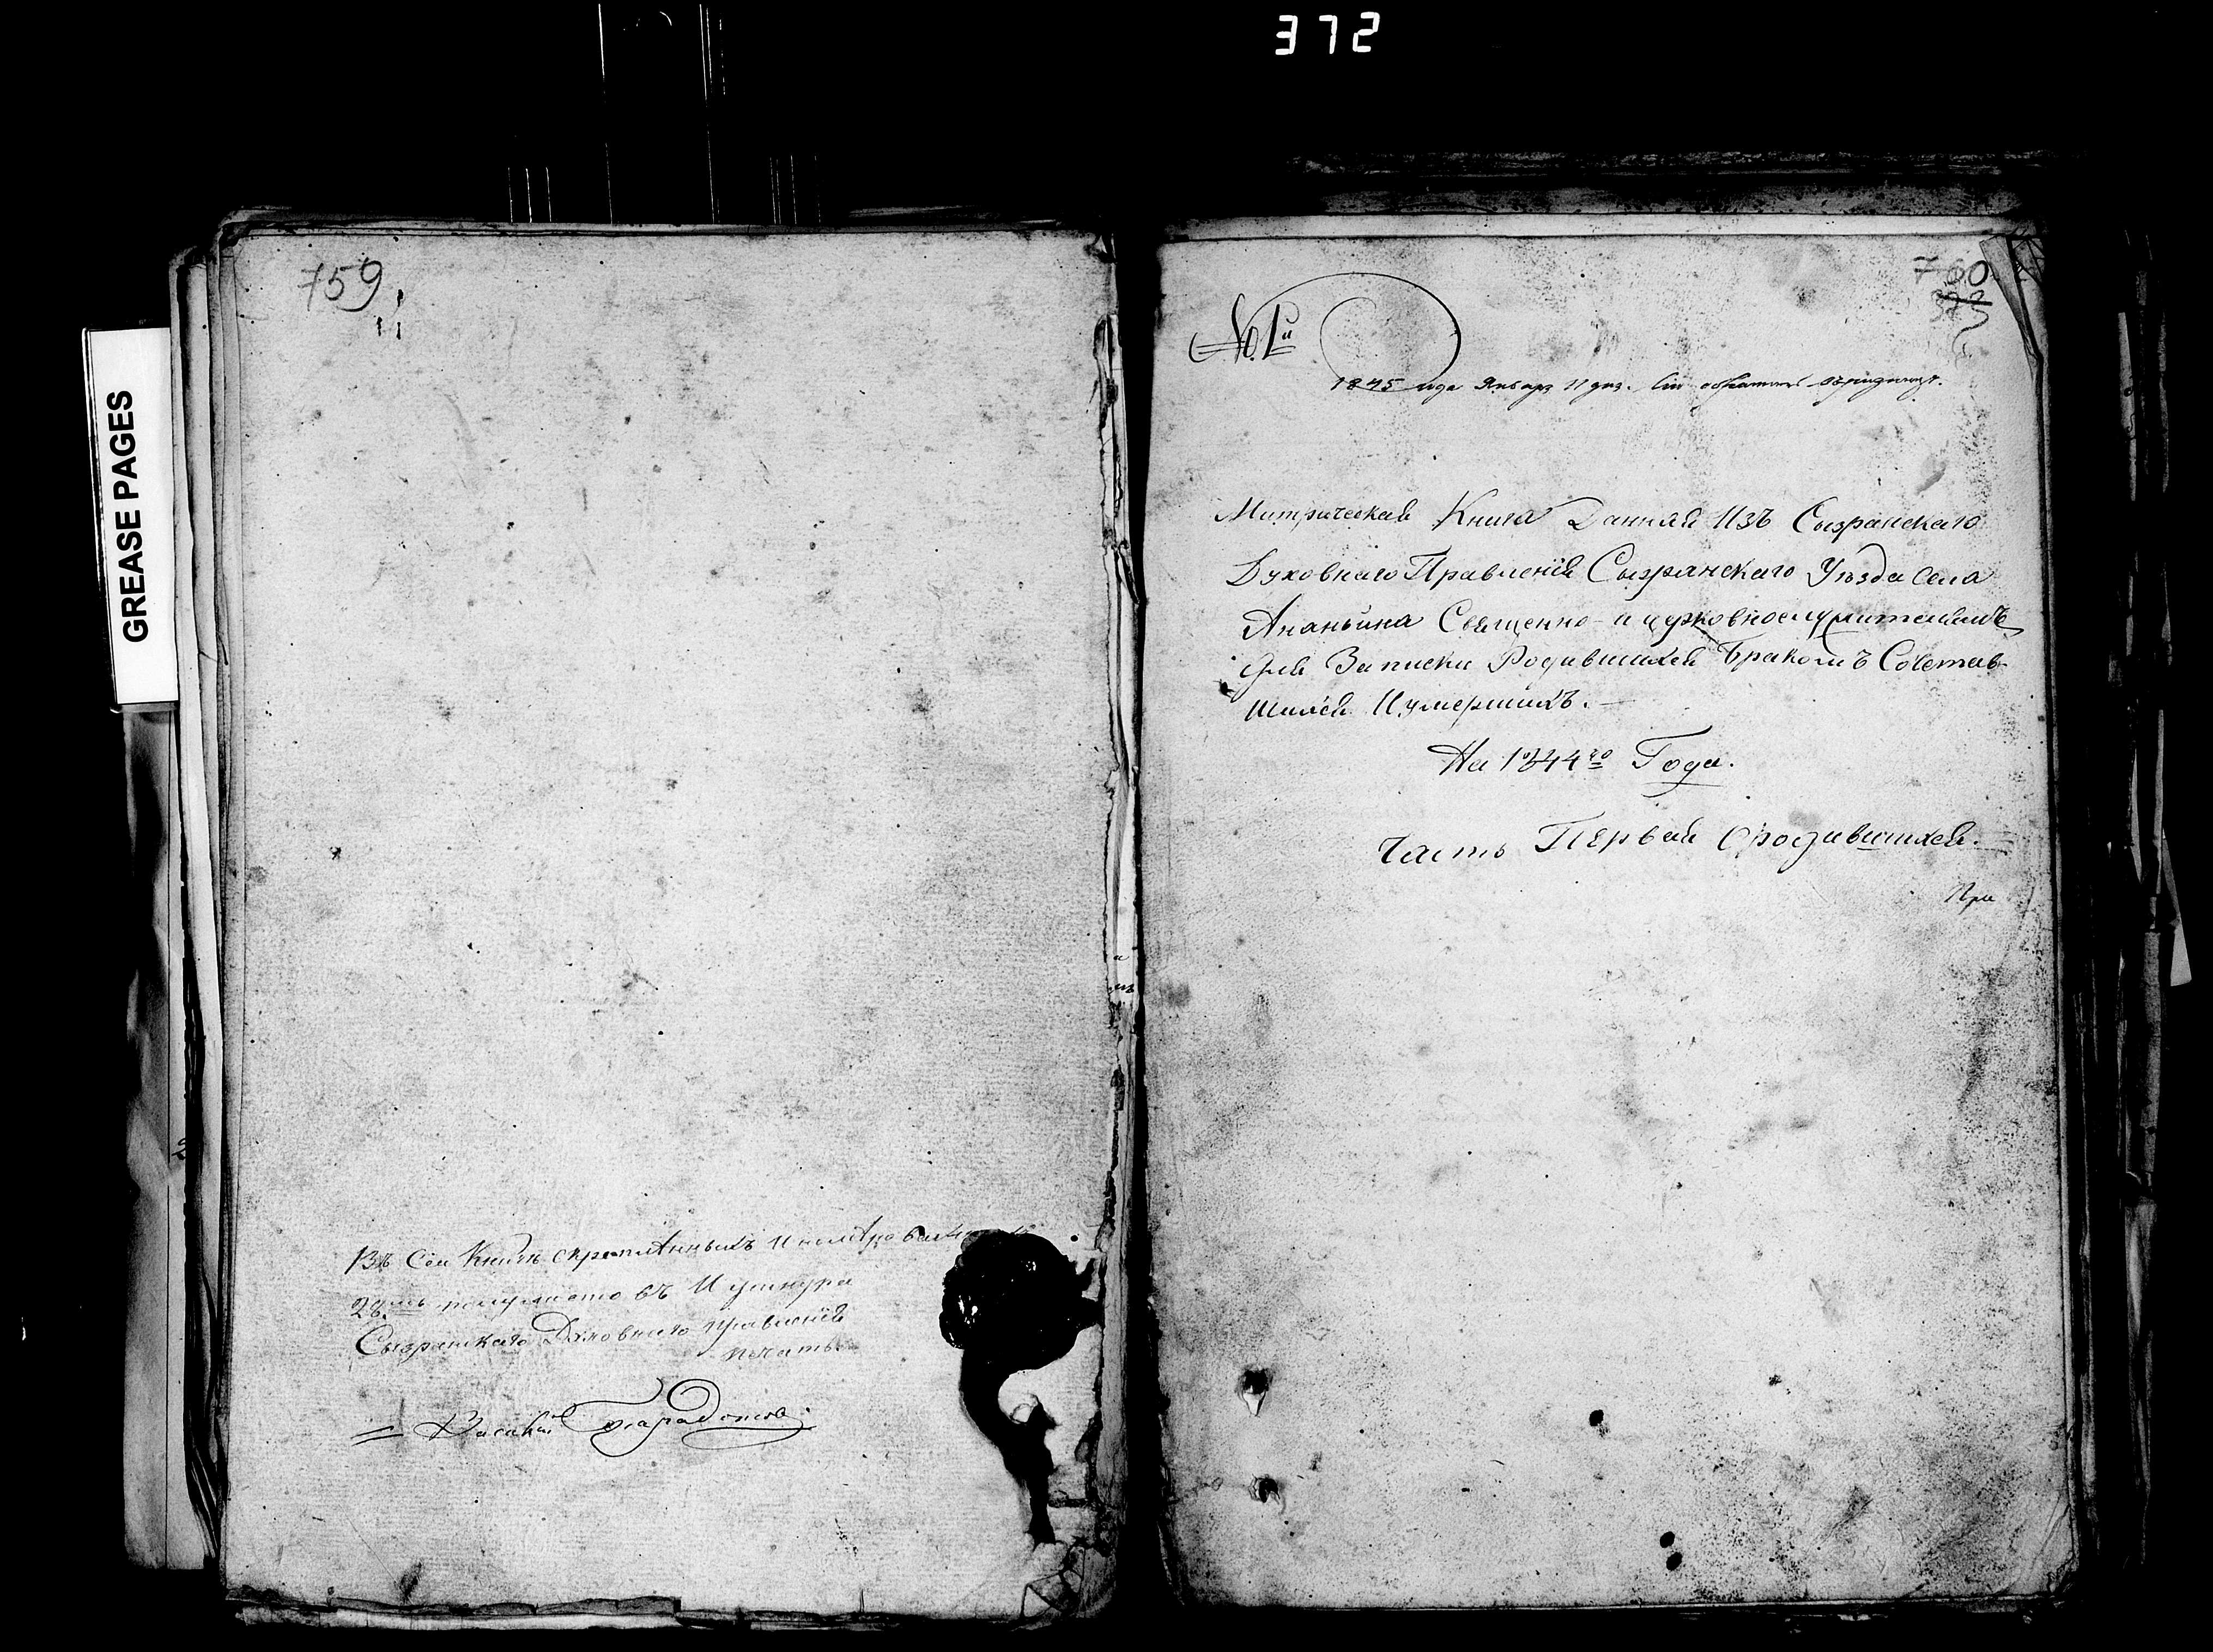 372
GREASE PAGES
759
Въ сей Книгѣ скрепленныхъ
28мь полулистовъ И ушнура
Сызранскаго Духовнаго правленія
печать
760
373
№ 1й
1845 года Января 11 дня.
Митрическая Книга Данная Изъ Сызранскаго
Духовнаго Правленія Сызранскаго Уѣзда села
Ананьина Священно-и церковнослужителямъ
для Записки Родившихся Бракомъ Сочетав-
шихся И умершихъ.
На 1844го Года.
Часть Первая Ородившихся.
При